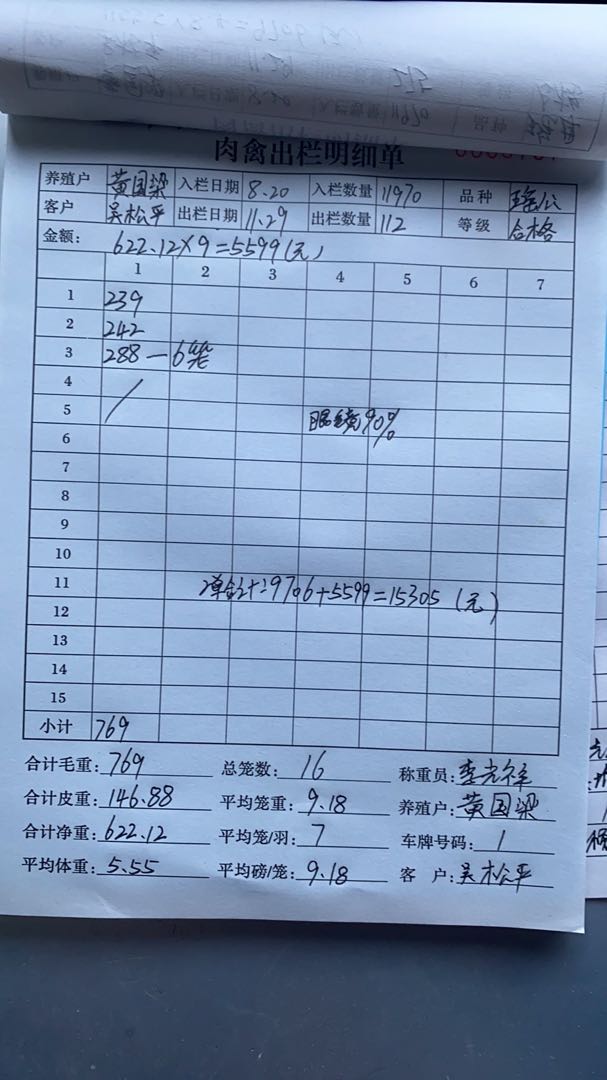 肉禽出栏明细单
养殖户 黄国梁 入栏日期 8.20 入栏数量 11970 品种 瑶公
客户 吴松平 出栏日期 11.29 出栏数量 112 等级 合格
金额: 622.12×9=5599(元)
1 2 3 4 5 6 7
1 239
2 242
3 288 — 6笼
4
5 眼镜90%
6
7
8
9
10
11 9706+5599=15305 (元)
12
13
14
15
小计 769
合计毛重: 769 总笼数: 16 称重员:
合计皮重: 146.88 平均笼重: 9.18 养殖户: 黄国梁
合计净重: 622.12 平均笼/羽: 7 车牌号码: 1
平均体重: 5.55 平均磅/笼: 9.18 客 户: 吴松平